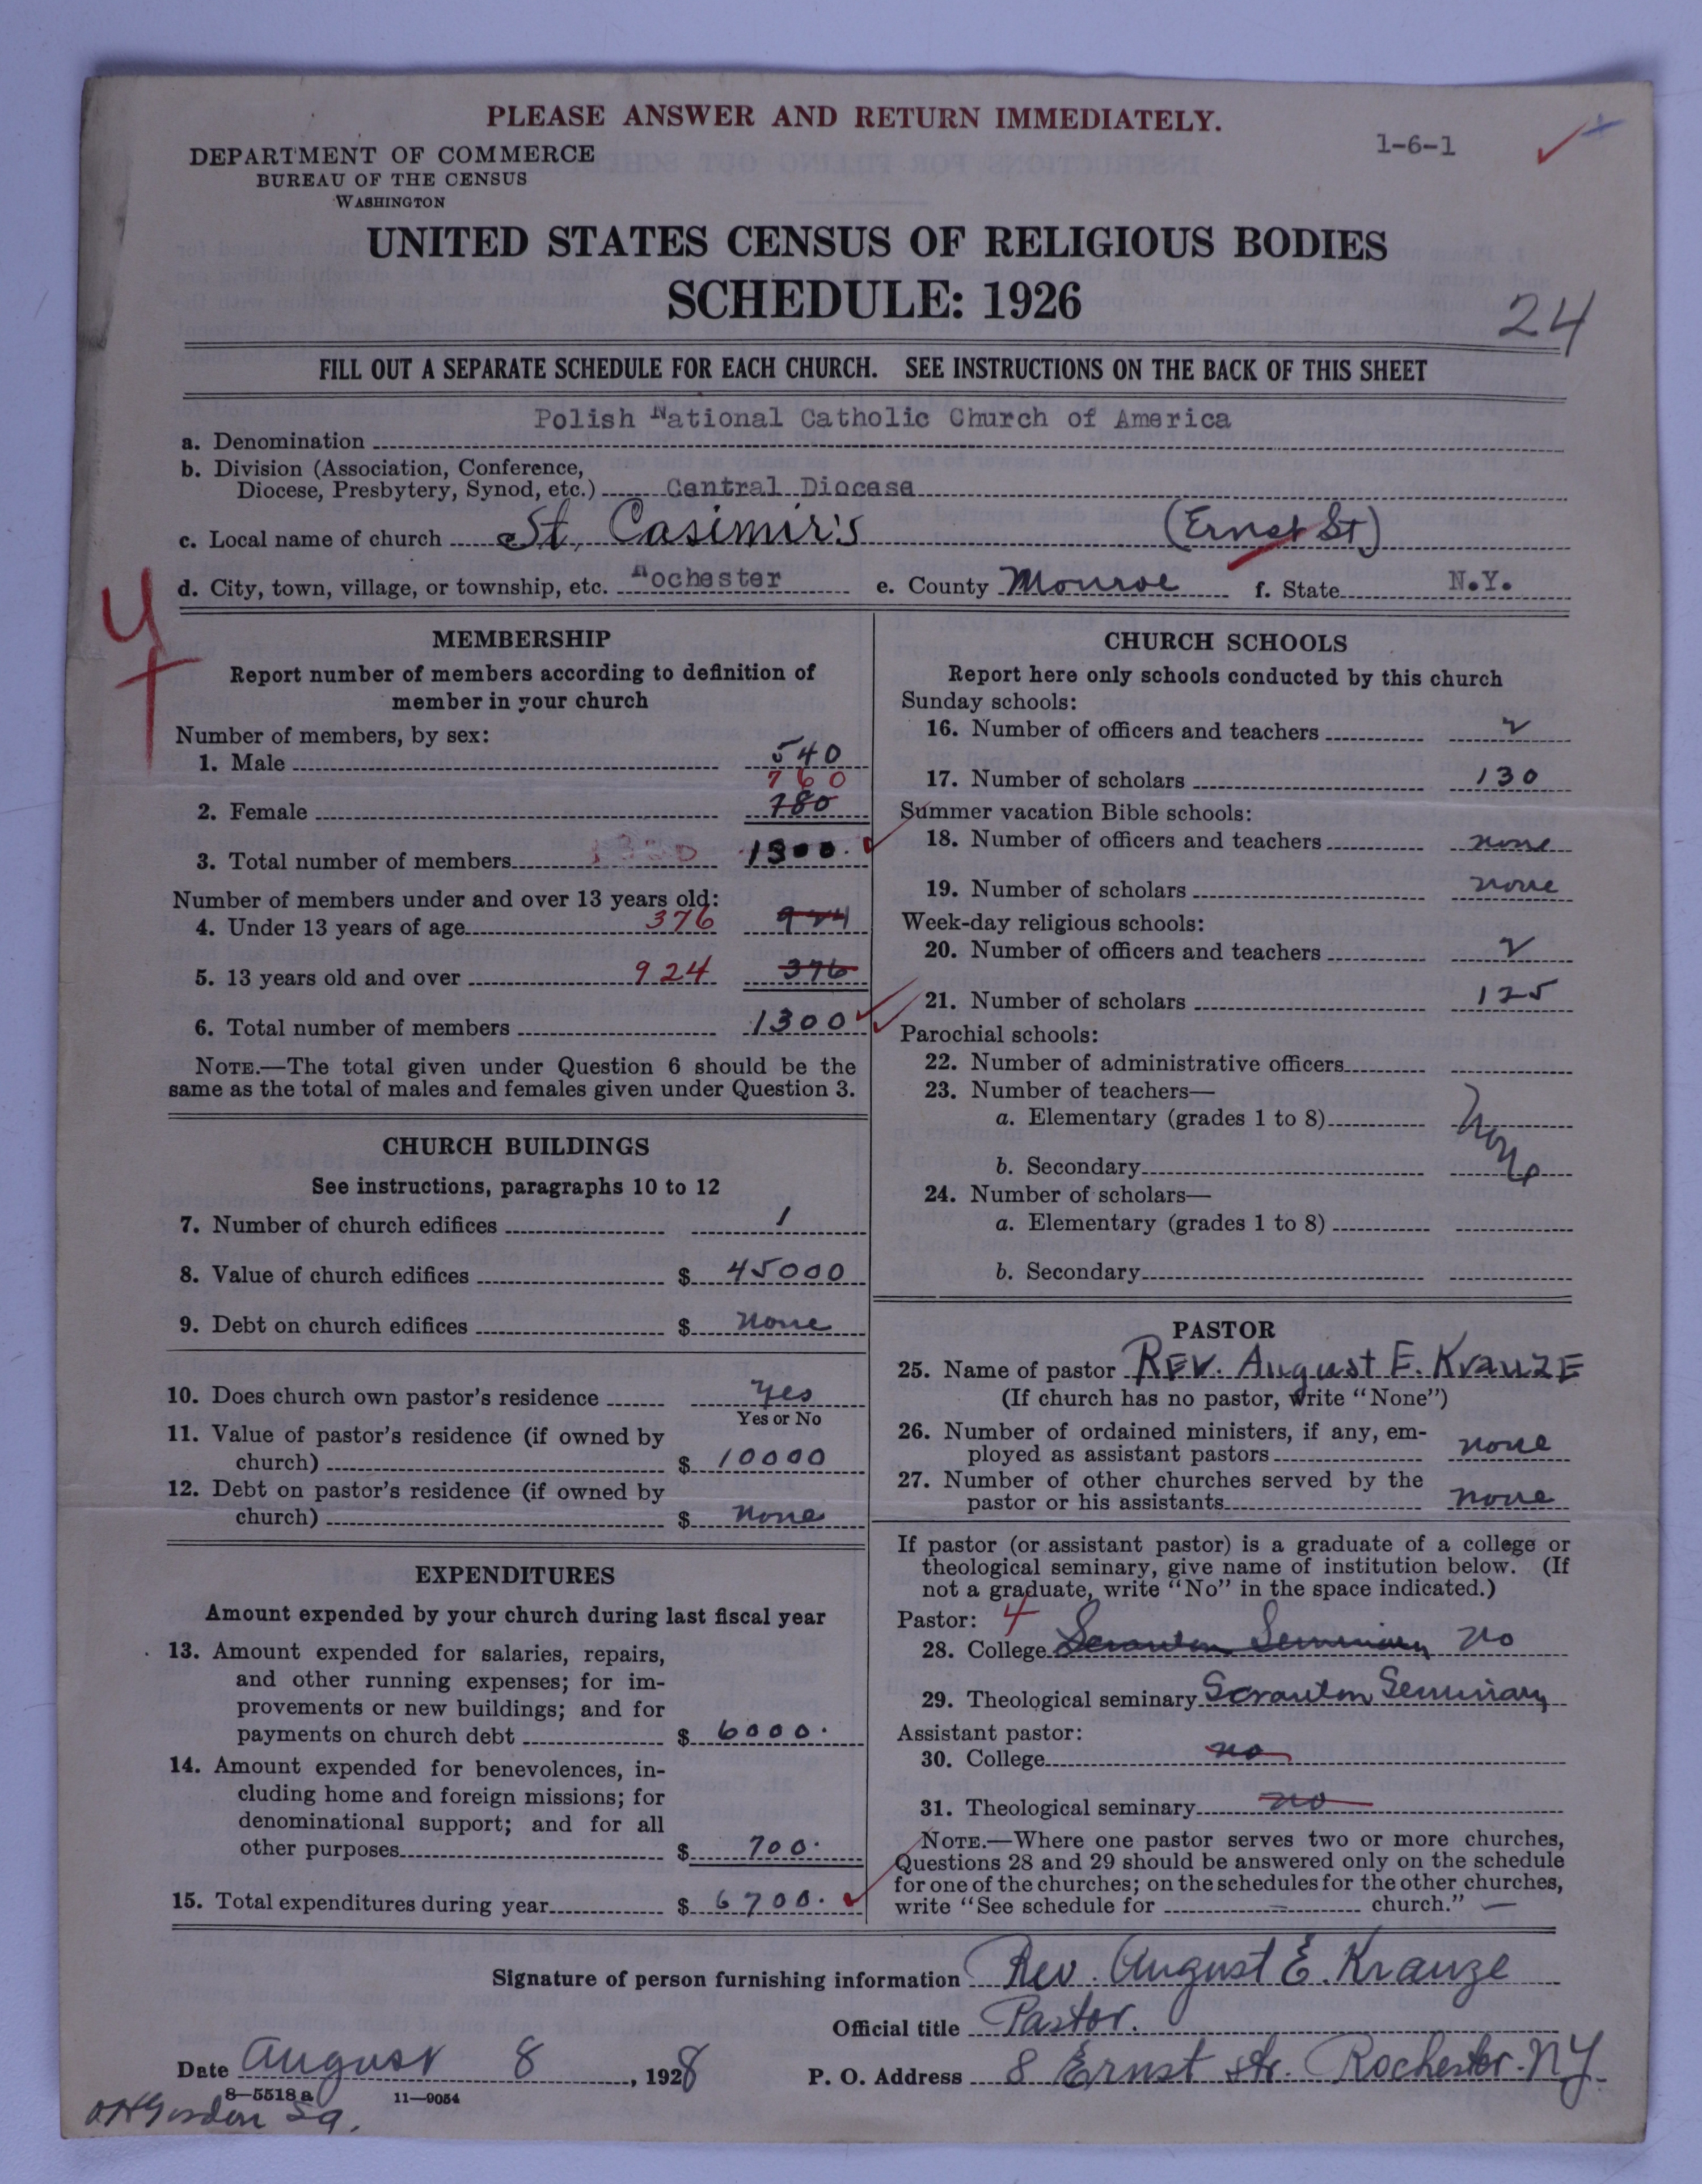 PLEASE ANSWER AND RETURN IMMEDIATELY.
1-6-1
DEPARTMENT OF COMMERCE
BUREAU OF THE CENSUS
WASHINGTON
UNITED STATES CENSUS OF RELIGIOUS BODIES
SCHEDULE: 1926
24
FILL OUT A SEPARATE SCHEDULE FOR EACH CHURCH. SEE INSTRUCTIONS ON THE BACK OF THIS SHEET
a. Denomination Polish National Catholic Church of America
b. Division (Association, Conference,
Diocese, Presbytery, Synod, etc.) Central Diocese
c. Local name of church St. Casimir's (Ernst St)
d. City, town, village, or township, etc. Rochester e. County Monroe f. State N.Y.
MEMBERSHIP
Report number of members according to definition of
member in your church
Number of members, by sex:
1. Male 540
760
2. Female 780
3. Total number of members 1300
Number of members under and over 13 years old:
4. Under 13 years of age 376 924
5. 13 years old and over 924 376
6. Total number of members 1300
NOTE.—The total given under Question 6 should be the
same as the total of males and females given under Question 3.
CHURCH BUILDINGS
See instructions, paragraphs 10 to 12
7. Number of church edifices 1
8. Value of church edifices $ 45000
9. Debt on church edifices $ none
10. Does church own pastor's residence yes
Yes or No
11. Value of pastor's residence (if owned by
church) $ 10000
12. Debt on pastor's residence (if owned by
church) $ none
EXPENDITURES
Amount expended by your church during last fiscal year
13. Amount expended for salaries, repairs,
and other running expenses; for im-
provements or new buildings; and for
payments on church debt $ 6000.
14. Amount expended for benevolences, in-
cluding home and foreign missions; for
denominational support; and for all
other purposes $ 700.
15. Total expenditures during year $ 6700.
CHURCH SCHOOLS
Report here only schools conducted by this church
Sunday schools:
16. Number of officers and teachers 2
17. Number of scholars 130
Summer vacation Bible schools:
18. Number of officers and teachers none
19. Number of scholars none
Week-day religious schools:
20. Number of officers and teachers 2
21. Number of scholars 125
Parochial schools:
22. Number of administrative officers
23. Number of teachers—
a. Elementary (grades 1 to 8) none
b. Secondary
24. Number of scholars—
a. Elementary (grades 1 to 8)
b. Secondary
PASTOR
25. Name of pastor REV. August E. KrauzE
(If church has no pastor, write "None")
26. Number of ordained ministers, if any, em-
ployed as assistant pastors none
27. Number of other churches served by the
pastor or his assistants none
If pastor (or assistant pastor) is a graduate of a college or
theological seminary, give name of institution below. (If
not a graduate, write "No" in the space indicated.)
Pastor: 4
28. College Scranton Seminary no
29. Theological seminary Scranton Seminary
Assistant pastor:
30. College no
31. Theological seminary no
NOTE.—Where one pastor serves two or more churches,
Questions 28 and 29 should be answered only on the schedule
for one of the churches; on the schedules for the other churches,
write "See schedule for church."
Signature of person furnishing information Rev. August E. Krauze
Official title Pastor.
Date August 8, 1928 P. O. Address 8 Ernst str. Rochester. N.Y.
8—5518 a 11—9054